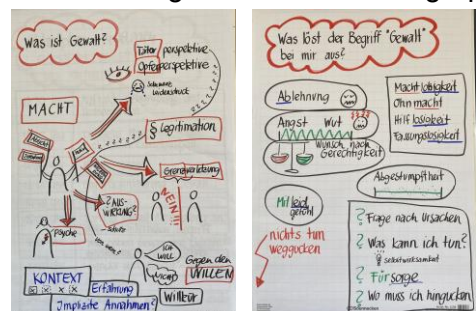 Was ist Gewalt?
Täter perspektive
Opferperspektive
MACHT
§ Legitimation
Grenzverletzung
NEIN!!!
? AUS-
WIRKUNG?
Psyche
ICH
WILL
NICHT
Gegen den
WILLEN
KONTEXT
Erfahrung
Willkür
Implizite Annahmen?
Was löst der Begriff "Gewalt"
bei mir aus?
Ablehnung
Angst Wut
Wunsch nach
Gerechtigkeit
Machtlosigkeit
Ohnmacht
Hilflosigkeit
Fassungslosigkeit
Abgestumpftheit
Mitleid
gefühl
nichts tun
weggucken
? Frage nach Ursachen
? Was kann ich tun?
Selbstwirksamkeit
? Fürsorge
? Wo muss ich hingucken